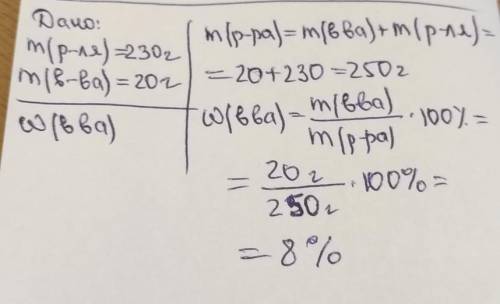 Дано:
m(р-ля)=230г
m(в-ва)=20г
ω(вва)
m(р-ра)=m(вва)+m(р-ля)=
=20+230=250г
ω(вва)=m(вва)/m(р-ра)·100%=
=20г/250г·100%=
=8%